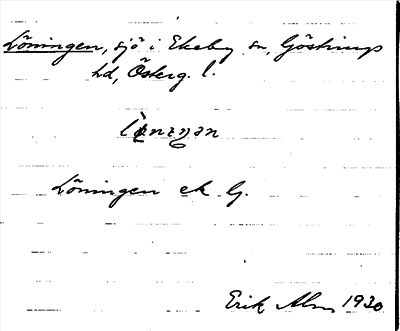 Löningen, sjö i Ekeby sn, Göstrings
hd, Österg. l.
Löningen ek G.
Erik Alm 1930